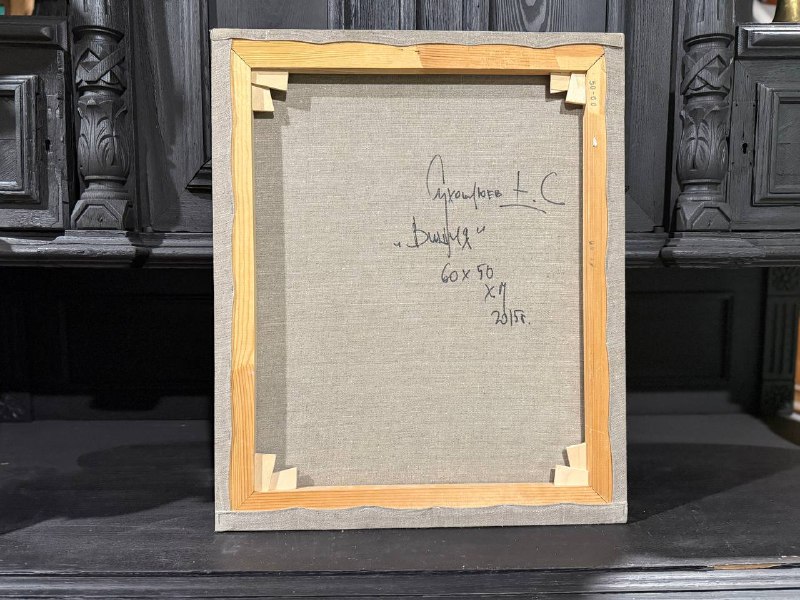 Сухоплюев Е. С
„Вишня"
60х50
ХМ
2015г.